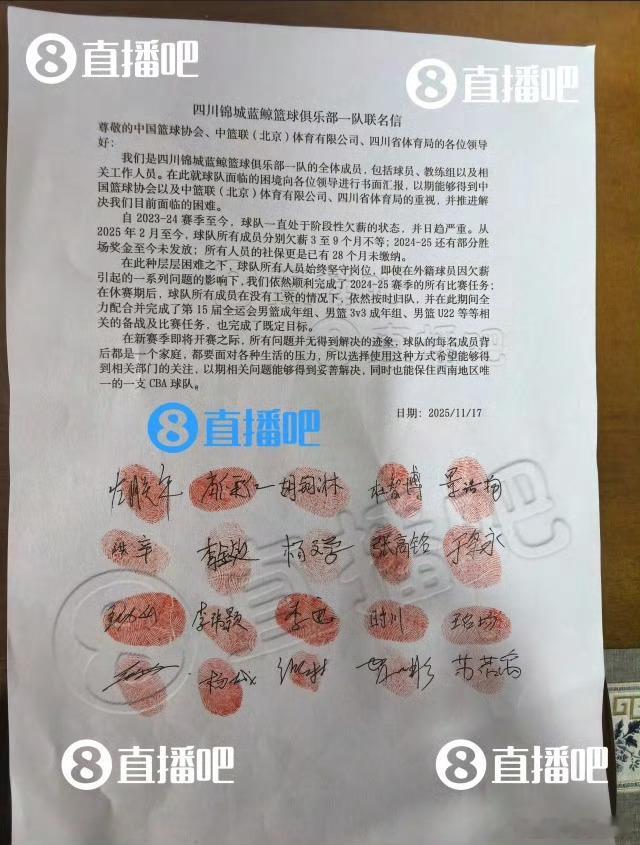 8直播吧
8直播吧
四川锦城蓝鲸篮球俱乐部一队联名信
尊敬的中国篮球协会、中篮联（北京）体育有限公司、四川省体育局的各位领导
好：
我们是四川锦城蓝鲸篮球俱乐部一队的全体成员，包括球员、教练组以及相
关工作人员。在此就球队面临的困境向各位领导进行书面汇报，以期能够得到中
国篮球协会以及中篮联（北京）体育有限公司、四川省体育局的重视，并推进解
决我们目前面临的困难。
自 2023-24 赛季至今，球队一直处于阶段性欠薪的状态，并日趋严重。从
2025 年 2 月至今，球队所有成员分别欠薪 3 至 9 个月不等；2024-25 还有部分胜
场奖金至今未发放；所有人员的社保更是已有 28 个月未缴纳。
在此种层层困难之下，球队所有人员始终坚守岗位，即使在外籍球员因欠薪
引起的一系列问题的影响下，我们依然顺利完成了 2024-25 赛季的所有比赛任务；
在休赛期后，球队所有成员在没有工资的情况下，依然按时归队，并在此期间全
力配合并完成了第 15 届全运会男篮成年组、男篮 3v3 成年组、男篮 U22 等等相
关的备战及比赛任务，也完成了既定目标。
在新赛季即将开赛之际，所有问题并无得到解决的迹象，球队的每名成员背
后都是一个家庭，都要面对各种生活的压力，所以选择使用这种方式希望能够得
到相关部门的关注，以期相关问题能够得到妥善解决，同时也能保住西南地区唯
一的一支 CBA 球队。
日期：2025/11/17
8直播吧
杜智博 景浩楠
杨文学 张高铭 于梁永
李琪颢 李迅 时川
苏若禹
8直播吧
8直播吧
8直播吧